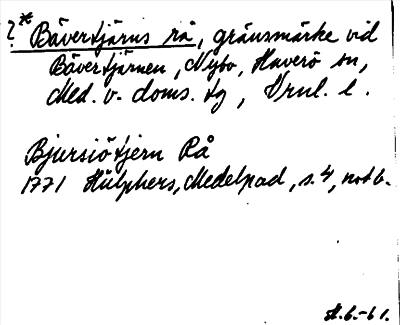 ?* Bävertjärns rå, gränsmärke vid
Bävertjärnen, Nybo, Haverö sn,
Med. v. doms. tg, Vnl. l.
Bjursiötjern Rå
1771 Hülphers, Medelpad, s. 4, not 6.